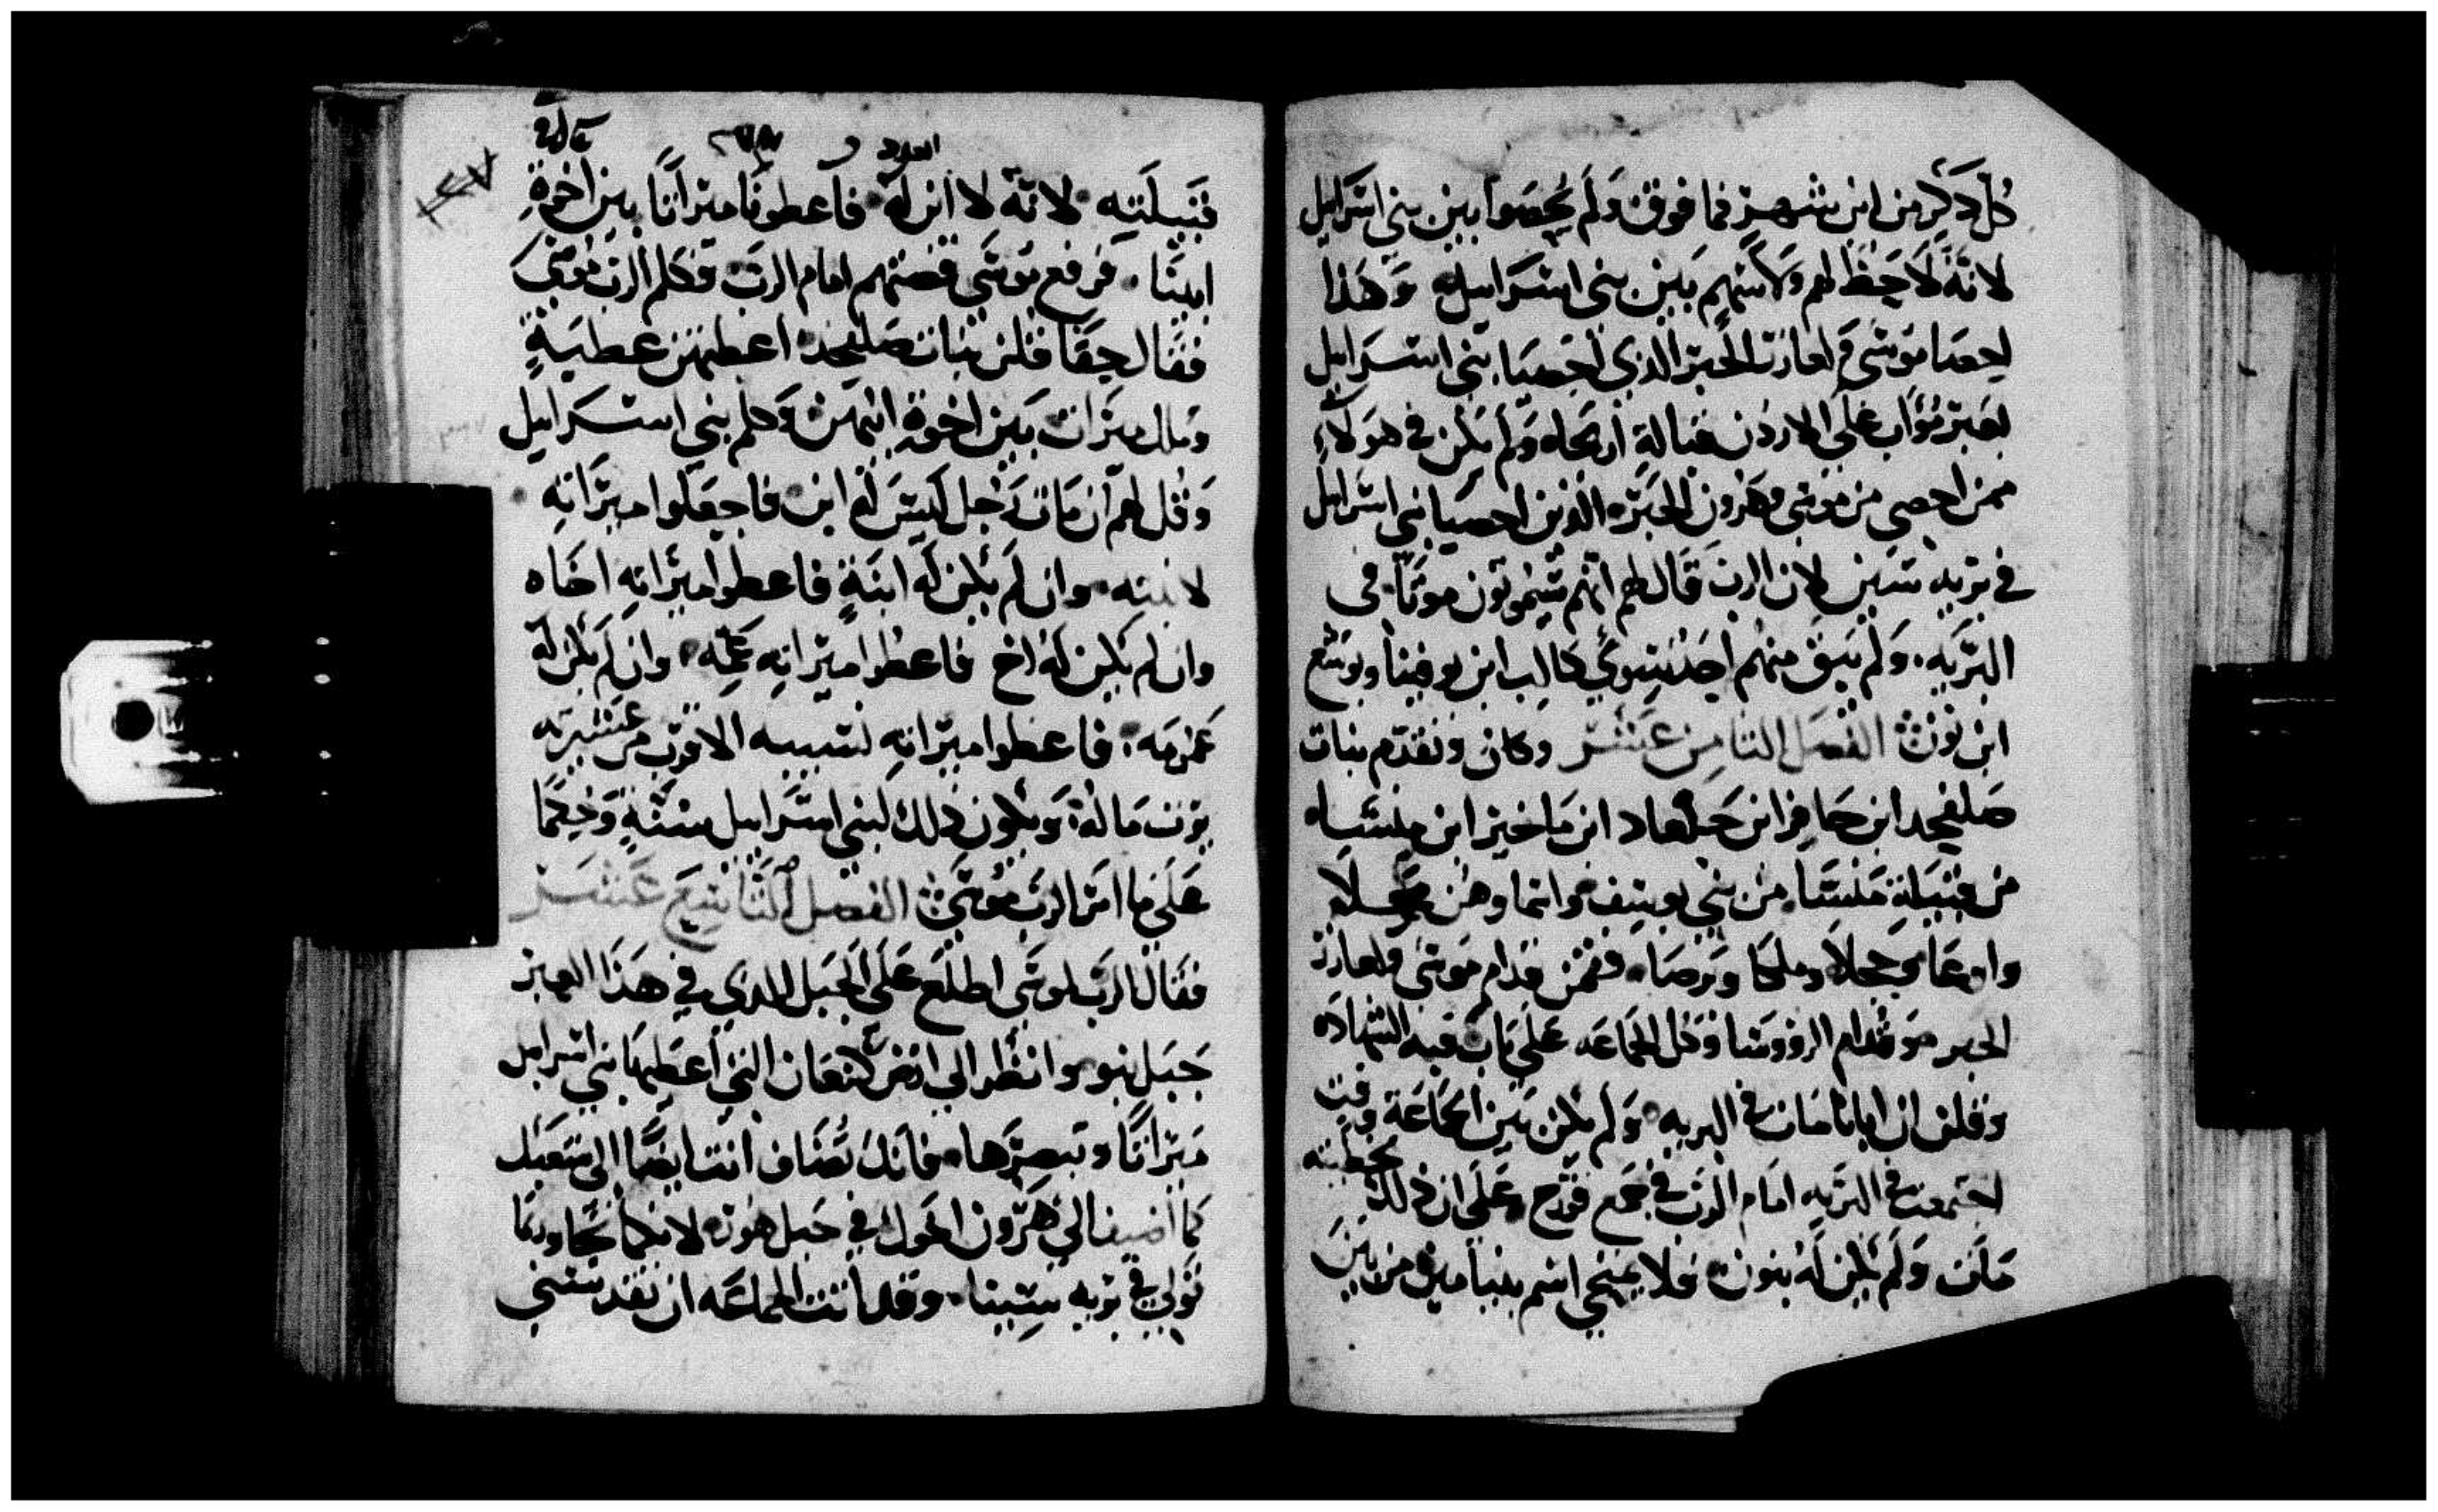 كل ذكر من ابن شهر فما فوق ولم يحصوا بين بني اسرايل
لانه لا حظ لهم ولا سهم بين بني اسرايل وهذا
احصا موسى و لعازر الحبر الذي احصيا بني اسرايل
بعبر مواب على الاردن قبالة اريحا ولم يكن في هولاء
ممن احصى من موسى وهرون الحبر الذين احصيا بني اسرايل
في بريه سين لان الرب قال لهم انهم سيموتون موتا في
البريه ولم يبق منهم احد سوى كالب ابن يوفينا ويوشع
ابن نون الفصل الثامن عشر وكان وتقدم بنات
صلفحد ابن حافر ابن جلعاد ابن ماخير ابن منشاه
من قبيلة منشا من بني يوسف واسما وهن محلا
وانوعا وحجلا وملكا وترصا فقمن قدام موسى ولعازر
الحبر وقدام الرووسا وكل الجماعه على باب قبه الشهاده
وقلن ان ابانا مات في البريه ولم يكن بين الجماعة وقت
اجتمعت في البريه امام الرب في جمع قورح وعلى ان ذلك بخطيته
مات ولم يكن له بنون فلا يمنحي اسم بنيامين من بين
العدد
قبيلته لانه لا ابن له فاعطونا ميراثا بين اخوة
ابينا فرفع موسى قصتهم امام الرب فكلم الرب موسى
فقال حقا قلن بنات صلفحد اعطهن عطية
وملك ميراث بين اخوة ابيهن وكلم بني اسرايل
وقل لهم ان مات رجل ليس له ابن فاجعلوا ميراثه
لابنته وان لم يكن له ابنة فاعطوا ميراثه اخاه
وان لم يكن له اخ فاعطوا ميراثه عمه وان لم يكن له
عمومه فاعطوا ميراثه لنسيبه الاقرب من عشيرته
يرث ماله ويكون ذلك لبني اسرايل سنة وحكما
على ما امر الرب موسى الفصل التاسع عشر
فقال الرب لموسى اطلع على الجبل الذي في هذا العبر
جبل نبو وانظر الى ارض كنعان التي اعطيها بني اسرايل
ميراثا وتبصرها فانك تضاف انت ايضا الى شعبك
كما اضيف الى هرون اخوك في جبل هور لانكما تجاوزتما
قولي في بريه سينا وقد ابت الجماعه ان تقدسني